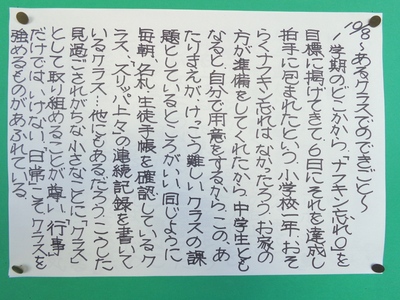 10/8〜あるクラスでのできごと〜
1学期のどこかから、「ナフキン忘れ0」を
目標に掲げてきて6日にそれを達成し
拍手に包まれたという。小学校一年、おそ
らくナフキン忘れはなかったろう。お家の
方が準備をしてくれたから。中学生とも
なると、自分で用意をするから。この、あ
たりまえが、けっこう難しい。クラスの課
題としているところがいい。同じように
毎朝、名札、生徒手帳を確認しているク
ラス、「スリッパ上々」の連続記録を書いて
いるクラス…他にもあるだろう。こうした
見過ごされがちな小さなことに「クラス」
として取り組めることが尊い。「行事」
だけでは、いけない。「日常」こそ、クラスを
強めるものがあふれている。